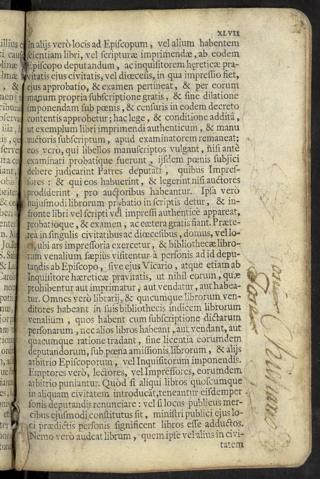 XLVII
in alijs verò locis ad Episcopum, vel alium habentem
scientiam libri, vel scripturæ imprimendæ, ab eodem
Episcopo deputandum, ac inquisitorem hęreticæ pra-
vitatis eius civitatis, vel diœcesis, in qua impressio fiet,
ejus approbatio, & examen pertineat, & per eorum
manum propria subscriptione gratis, & sine dilatione
imponendam sub pœnis, & censuris in eodem decreto
contentis approbetur; hac lege, & conditione addità,
ut exemplum libri imprimendi authenticum, & manu
auctoris subscriptum, apud examinatorem remaneat;
eos verò, qui libellos manuscriptos vulgant, nisi antè
examinati probatique fuerunt, ijsdem pœnis subjici
debere judicarint Patres deputati, quibus Impres-
sores: & qui eos habuerint, & legerint nisi auctores
prodiderint, pro auctoribus habeantur. Ipsa verò
hujusmodi librorum probatio in scriptis detur, & in-
fronte libri vel scripti vel impressi authenticè appareat,
probatioque, & examen, ac cætera gratis fiant. Præte-
rea in singulis civitatibus ac diœcesibus, domus, vel lo-
ci, ubi ars impressoria exercetur, & bibliothecæ libro-
rum venalium sæpius visitentur à personis ad id depu-
tandis ab Episcopo, sive ejus Vicario, atque etiam ab
Inquisitore hæreticæ pravitatis, ut nihil eorum, quæ
prohibentur aut imprimatur, aut vendatur, aut habea-
tur. Omnes verò librarij, & quicumque librorum ven-
ditores habeant in suis bibliothecis indicem librorum
venalium, quos habent cum subscriptione dictarum
personarum, nec alios libros habeant, aut vendant, aut
quacumque ratione tradant, sine licentia eorumdem
deputandorum, sub pœna amissionis librorum, & alijs
arbitrio Episcoporum, vel Inquisitorum imponendis.
Emptores verò, lectores, vel Impressores, eorumdem
arbitrio puniantur. Quòd si aliqui libros quoscumque
in aliquam civitatem introducãt, teneantur eisdem per
sonis deputandis renunciare: vel si locus publicus mer-
cibus ejusmodi constitutus sit, ministri publici ejus lo-
ci prædictis personis significent libros esse adductos.
Nemo verò audeat librum, quem ipse vel alius in civi-
tatem